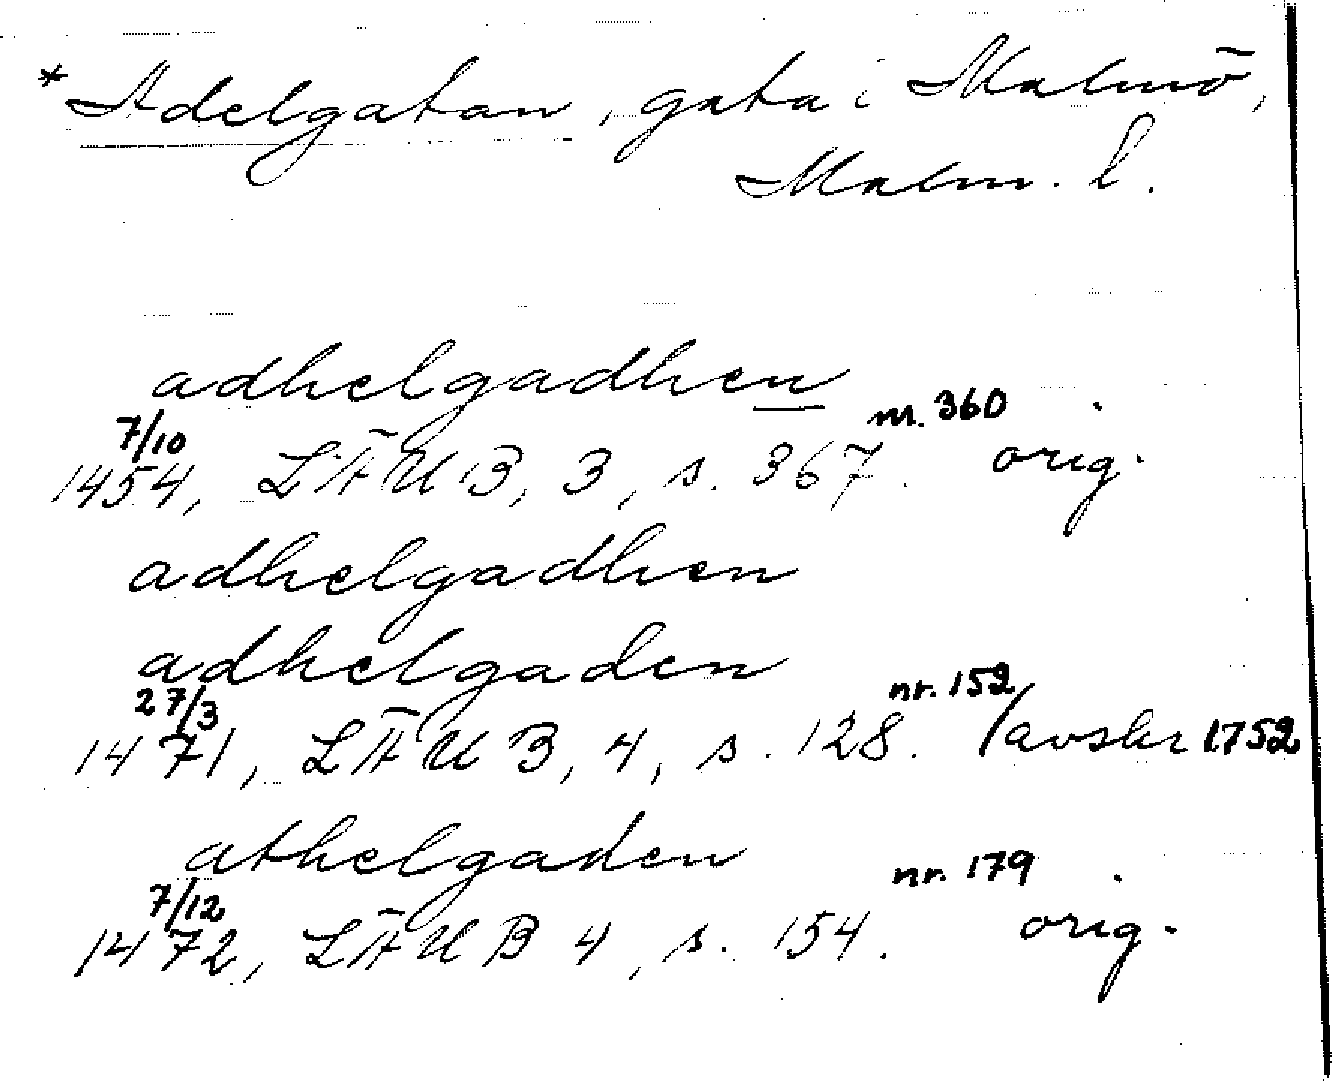 *Adelgatan, gata i Malmö,
Malm. l.
adhelgadhen
7/10 nr. 360
1454, LÄUB, 3, s. 367. orig.
adhelgadhen
adhelgaden
27/3 nr. 152
1471, LÄUB, 4, s. 128. /avskr 1752
athelgaden
7/12 nr. 179
1472, LÄUB 4, s. 154. orig.